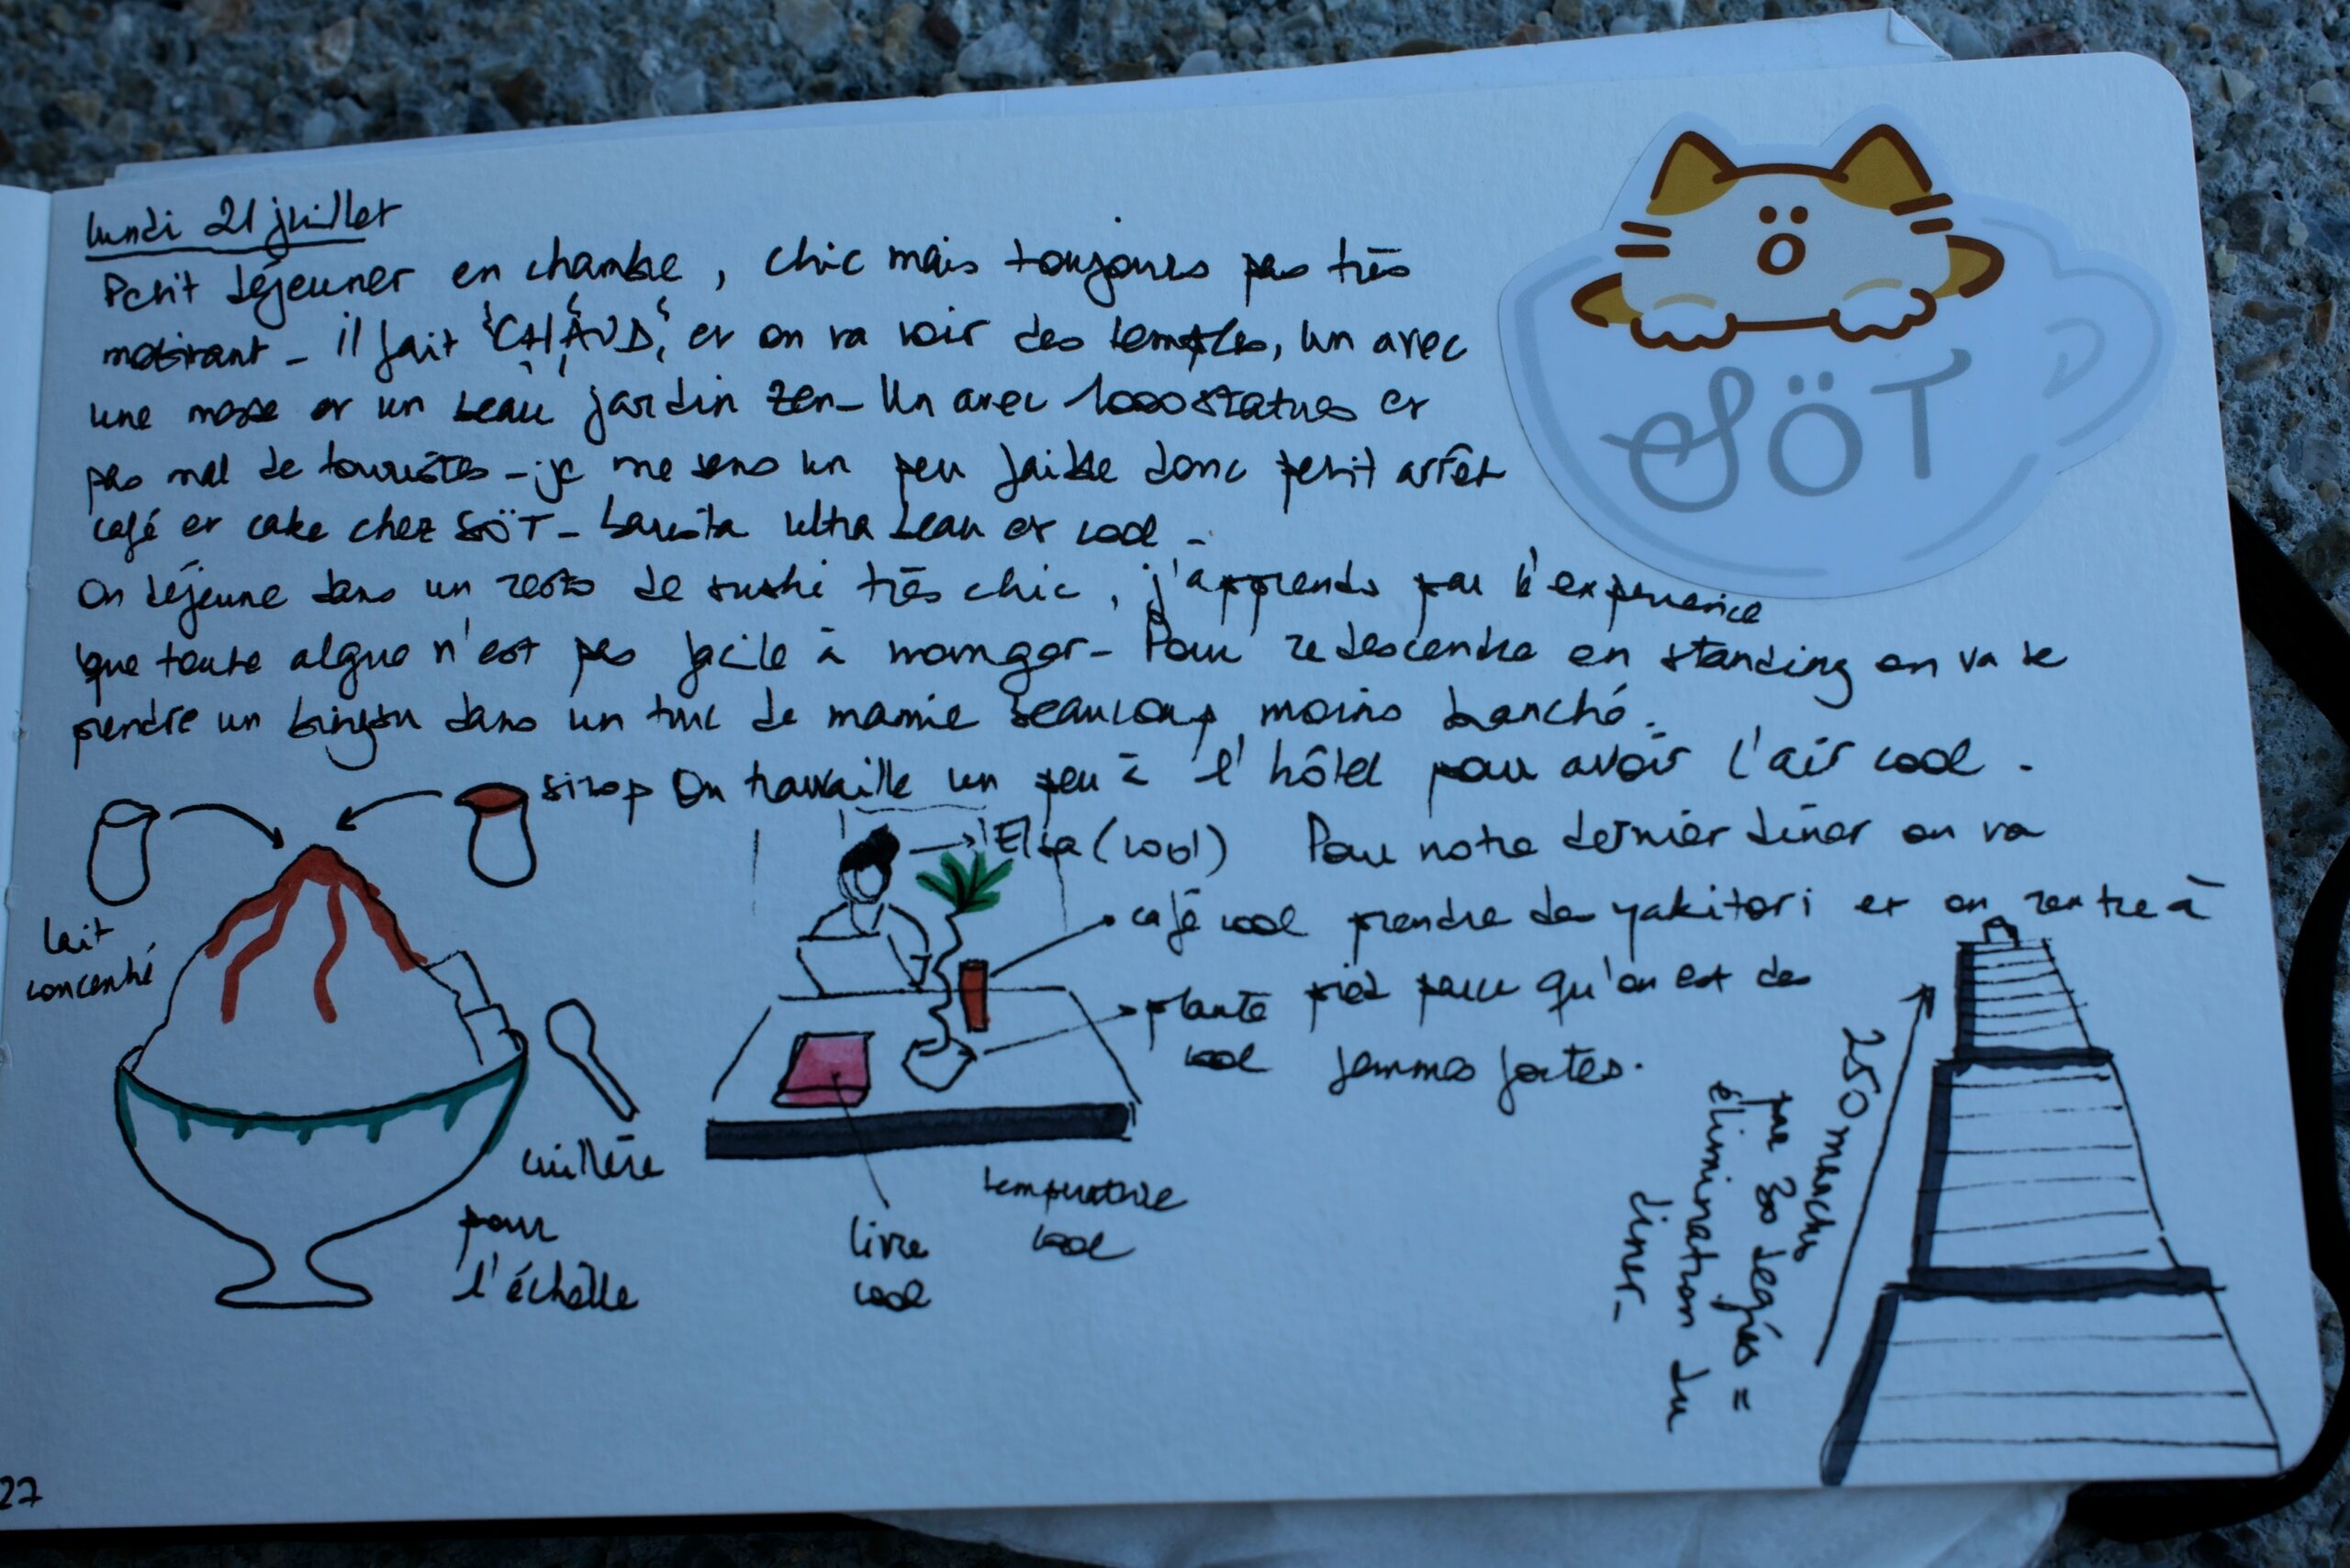 lundi 21 juillet
Petit déjeuner en chambre, chic mais toujours pas très
motivant - il fait CHAUD, et on va voir des temples, un avec
une mosse et un beau jardin zen - Un avec 1000 statues et
pas mal de touristes - je me sens un peu faible donc petit arrêt
café et cake chez SÖT - barista ultra beau et cool -
On déjeune dans un resto de sushi très chic, j'apprends par l'experience
que toute algue n'est pas facile à manger - Pour redescendre en standing on va se
prendre un bingsu dans un truc de mamie beaucoup moins branché.
On travaille un peu à l'hôtel pour avoir l'air cool.
Pour notre dernier dîner on va
prendre des yakitori et on rentre à
pied parce qu'on est des
femmes fortes.
SÖT
sirop
lait
concentré
cuillère
pour
l'échelle
Elsa (cool)
café cool
plante
cool
livre
cool
temperature
cool
250 marches
par 30 degrés =
élimination du
diner -
27